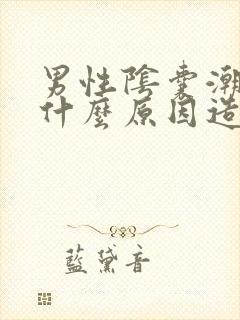 男性陰囊潮
什麼原因造
藍黛音